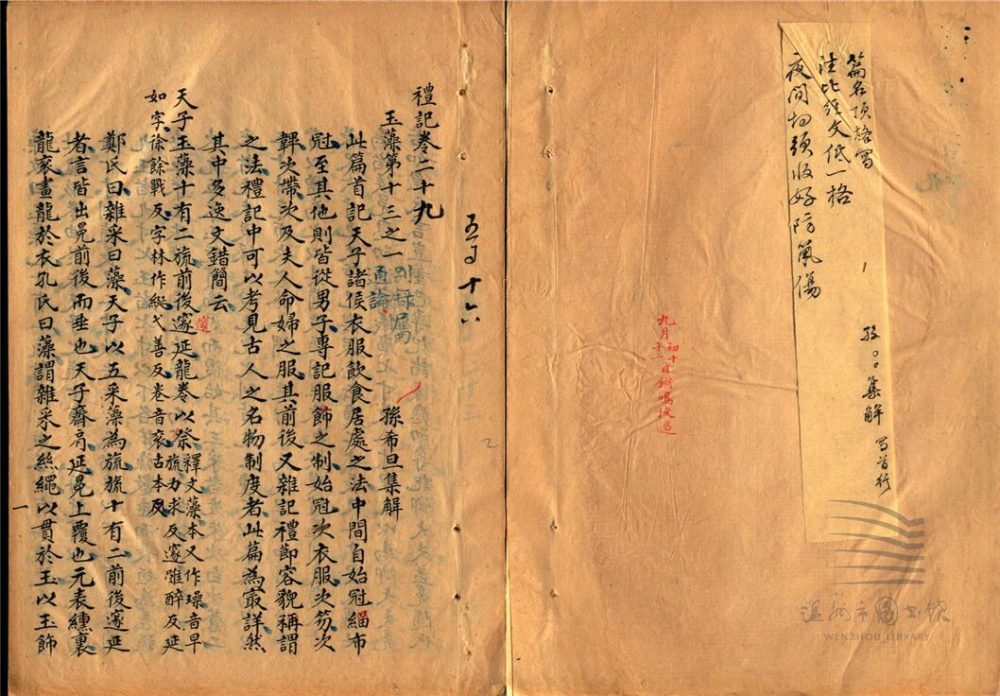 篇名頂格寫
注比經文低一格
夜間切須收好防氣傷
孫〻集解 寫首行
九月初十日
十一
溫州市图书馆
WENZHOU LIBRARY
禮記卷二十九
五口十六
玉藻第十三之一 別錄屬通論 孫希旦集解
此篇首記天子諸侯衣服飲食居處之法中間自始冠緇布
冠至其他則皆從男子專記服飾之制始冠次衣服次笏次
韠次帶次及夫人命婦之服其前後又雜記禮節容貌稱謂
之法禮記中可以考見古人之名物制度者此篇為最詳然
其中多逸文錯簡云
天子玉藻十有二旒前後邃延龍卷以祭 釋文藻本又作璪音早旒力求反邃雖醉反延
邃
如字徐餘戰反字林作綖弋善反卷音衮古本反
鄭氏曰雜采曰藻天子以五采藻為旒旒十有二前後邃延
者言皆出冕前後而垂也天子齊肩延冕上覆也元表纁裏
龍衮畫龍於衣孔氏曰藻謂雜采之絲繩以貫於玉以玉飾
一